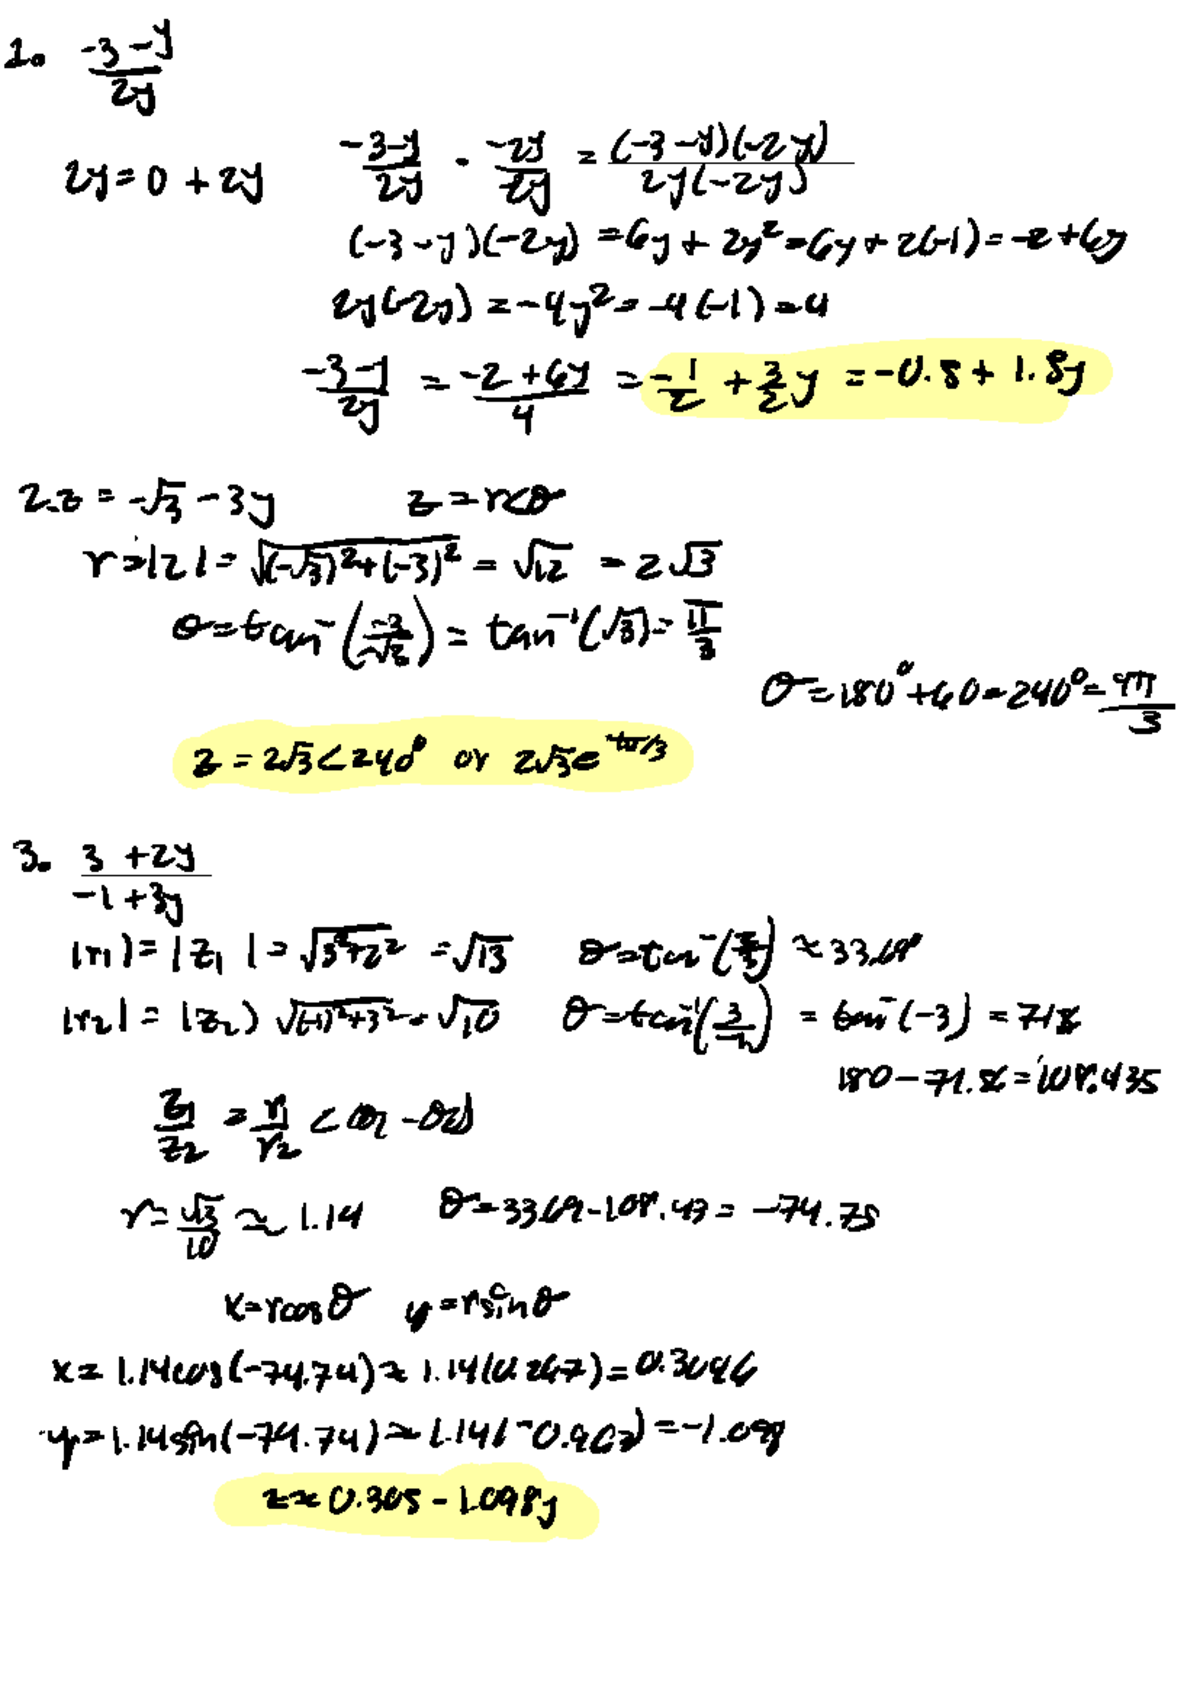 1. (-3-y)/(2y)
2y=0+2y (-3-y)/(2y) · (-2y)/(-2y) = ((-3-y)(-2y))/(2y(-2y))
(-3-y)(-2y) = 6y + 2y² = 6y + 2(-1) = -2+6y
2y(-2y) = -4y² = -4(-1) = 4
(-3-y)/(2y) = (-2+6y)/4 = -1/2 + 3/2 y = -0.5 + 1.5y
2. z = -√3 - 3y z = r<θ
r = |z| = √((-√3)²+(-3)²) = √12 = 2√3
θ = tan⁻(-3/-√3) = tan⁻¹(√3) = π/3
θ = 180° + 60 = 240° = 4π/3
z = 2√3 < 240° or 2√3e
3. (3+2y)/(-1+3y)
|r₁) = |z₁| = √(3²+2²) = √13 θ = tan⁻(2/3) ≈ 33.69°
|r₂| = |z₂) √((-1)²+3²) = √10 θ = tan⁻¹(3/-1) = tan⁻(-3) = 71.8
180 - 71.56 = 108.435
z₁/z₂ = r₁/r₂ < (θ₁ - θ₂)
r = √13/10 ≈ 1.14 θ = 33.69 - 108.43 = -74.75
x = rcosθ y = rsinθ
x = 1.14cos(-74.74) ≈ 1.14(0.267) = 0.3046
y = 1.14sin(-74.74) ≈ 1.14(-0.963) = -1.098
z ≈ 0.305 - 1.098y